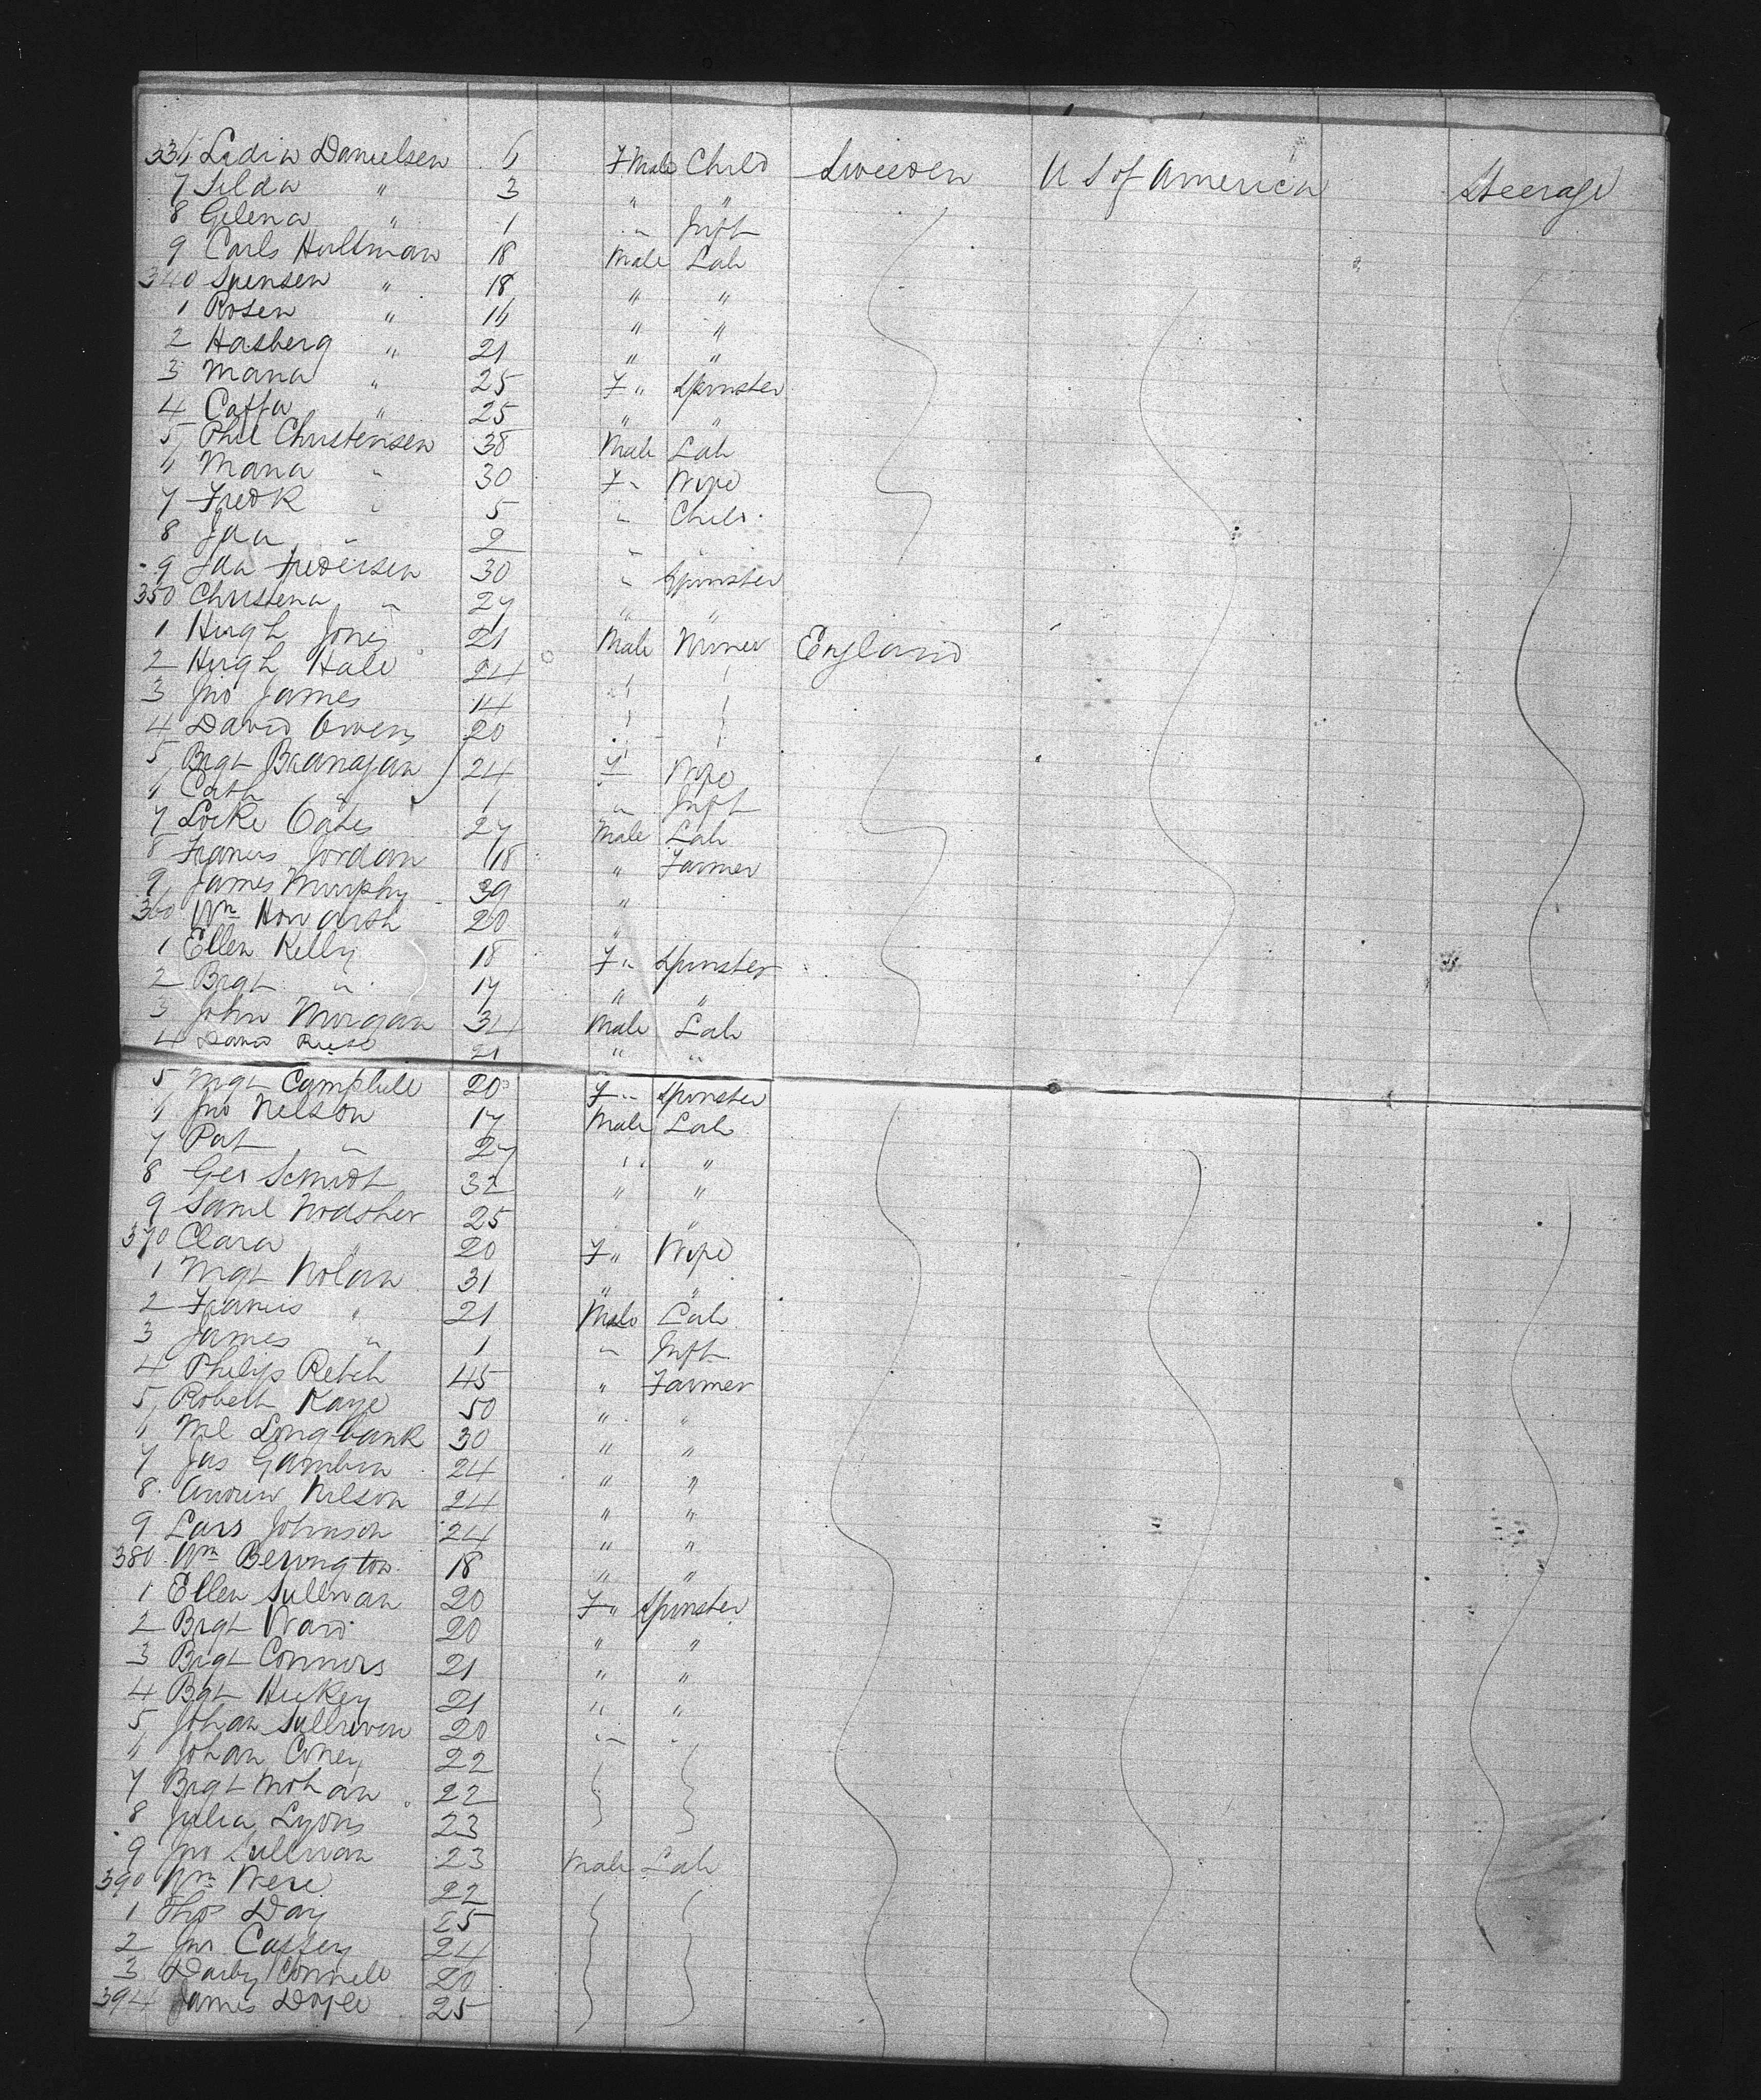 336 Ledia Danielsen 6 F Male Child Sweeden U S of America Steerage
7 Selda " 3 " "
8 Gelena " 1 " Inft
9 Carls Hultman 18 Male Lab
340 Svensen " 18 " "
1 Rosen " 16 " "
2 Hasberg " 21 " "
3 Maria " 25 F " Spinster
4 Caffa " 25 " "
5 Phil Christensen 38 Male Lab
6 Maria " 30 F " Wife
7 Fredk " 5 " Child
8 Jaa " 2 " "
9 Jaa Fredersen 30 " Spinster
350 Christena " 27 " "
1 Hugh Jones 21 Male Miner England
2 Hugh Hale 24 " "
3 Jno James 14 " "
4 David Owens 20 " "
5 Brgt Branagan 24 F Wife
6 Cath " 1 " Inft
7 Locke Oates 27 Male Lab
8 Francis Jordan 18 " Farmer
9 James Murphy 39 "
360 Wm Howarth 20 "
1 Ellen Kelly 18 F " Spinster
2 Brgt " 17 " "
3 John Morgan 34 Male Lab
4 David Reese 21 " "
5 Mgt Campbell 20 F " Spinster
6 Jno Nelson 17 Male Lab
7 Pat " 27 " "
8 Geo Scmidt 32 " "
9 Saml Wodsher 25 " "
370 Clara " 20 F " Wife
1 Mgt Nolan 31 " "
2 Francis " 21 Male Lab
3 James " 1 " Inft
4 Philip Retch 45 " Farmer
5 Robert Kaye 50 " "
6 Ml Longbank 30 " "
7 Jas Gamblin 24 " "
8 Andrew Nilson 24 " "
9 Lars Johnson 24 " "
380 Wm Bevington 18 " "
1 Ellen Sullivan 20 F " Spinster
2 Brgt Ward 20 " "
3 Brgt Connors 21 " "
4 Bgt Hickey 21 " "
5 Johan Sullivan 20 " "
6 Johan Coney 22
7 Brgt Mohan 22
8 Julia Lyons 23
9 Jno Sullivan 23 Male Lab
390 Wm Were 22
1 Thos Day 25
2 Jno Caffey 24
3 Darby Connell 20
394 James Doyle 25